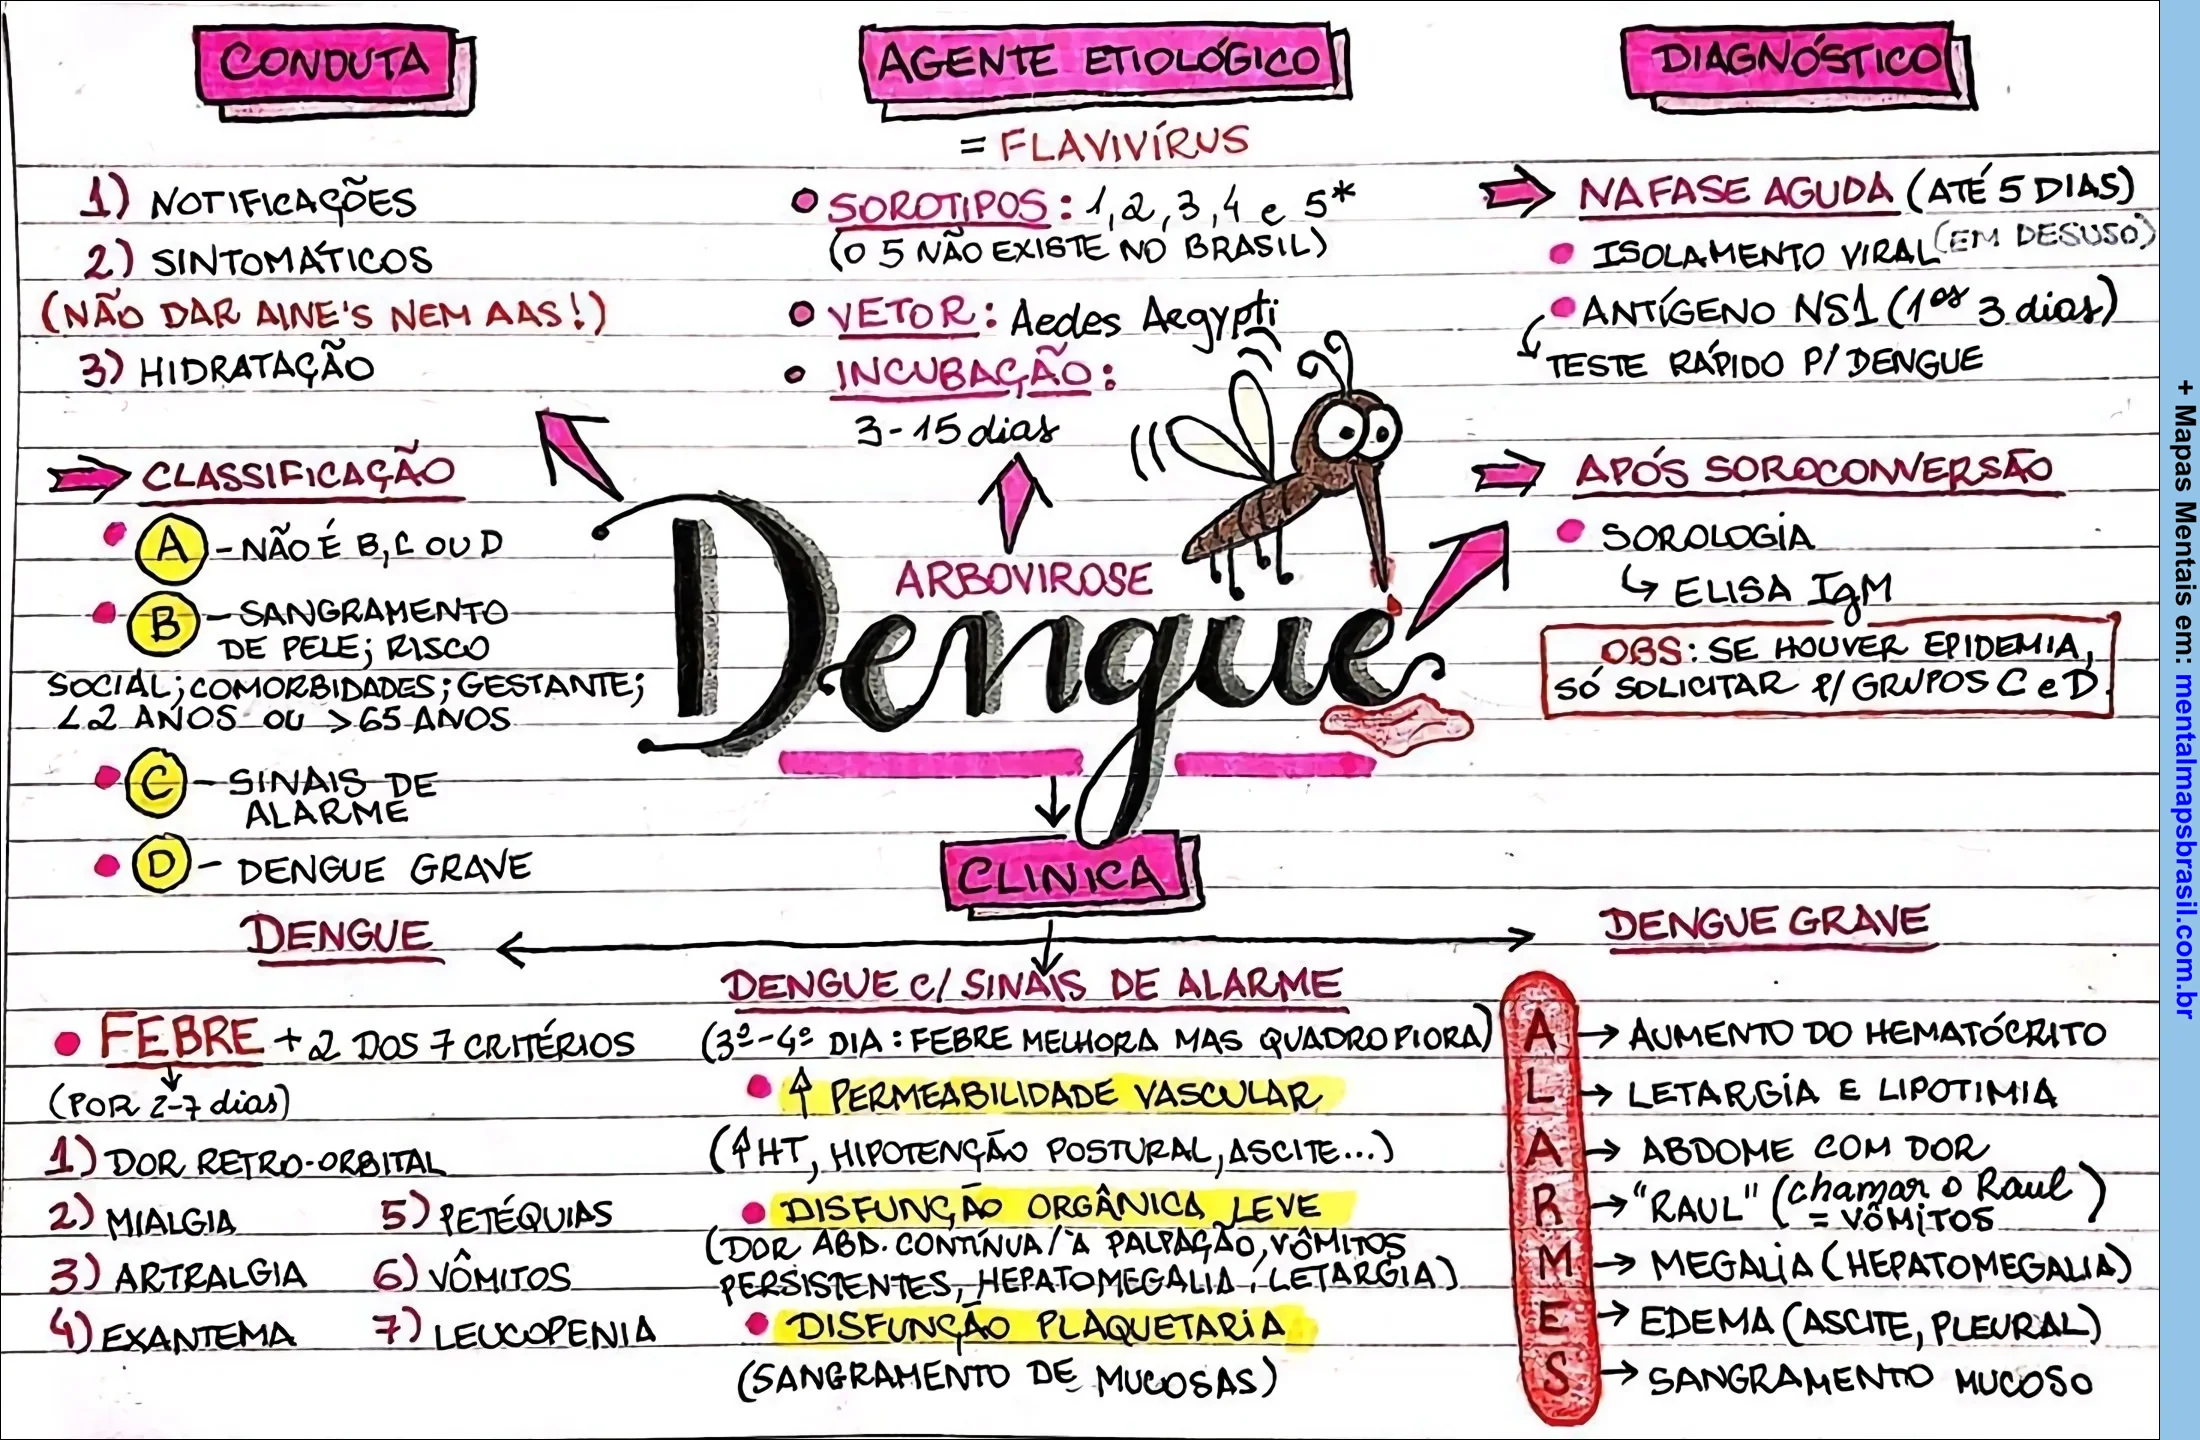 CONDUTA
1) NOTIFICAÇÕES
2) SINTOMÁTICOS
(NÃO DAR AINE'S NEM AAS!)
3) HIDRATAÇÃO
CLASSIFICAÇÃO
A - NÃO É B, C OU D
B - SANGRAMENTO
DE PELE; RISCO
SOCIAL; COMORBIDADES; GESTANTE;
<2 ANOS OU >65 ANOS
C - SINAIS DE
ALARME
D - DENGUE GRAVE
AGENTE ETIOLÓGICO
= FLAVIVÍRUS
SOROTIPOS: 1, 2, 3, 4 e 5*
(O 5 NÃO EXISTE NO BRASIL)
VETOR: Aedes Aegypti
INCUBAÇÃO:
3-15 dias
ARBOVIROSE
Dengue
DIAGNÓSTICO
NA FASE AGUDA (ATÉ 5 DIAS)
ISOLAMENTO VIRAL (EM DESUSO)
ANTÍGENO NS1 (1ºs 3 dias)
TESTE RÁPIDO P/ DENGUE
APÓS SOROCONVERSÃO
SOROLOGIA
ELISA IgM
OBS: SE HOUVER EPIDEMIA,
SÓ SOLICITAR P/ GRUPOS C e D.
CLINICA
DENGUE
FEBRE + 2 DOS 7 CRITÉRIOS
(POR 2-7 dias)
1) DOR RETRO-ORBITAL
2) MIALGIA
3) ARTRALGIA
4) EXANTEMA
5) PETÉQUIAS
6) VÔMITOS
7) LEUCOPENIA
DENGUE C/ SINAIS DE ALARME
(3º-4º DIA: FEBRE MELHORA MAS QUADRO PIORA)
↑ PERMEABILIDADE VASCULAR
(↑HT, HIPOTENÇÃO POSTURAL, ASCITE...)
DISFUNÇÃO ORGÂNICA LEVE
(DOR ABD. CONTÍNUA/À PALPAÇÃO, VÔMITOS
PERSISTENTES, HEPATOMEGALIA, LETARGIA)
DISFUNÇÃO PLAQUETARIA
(SANGRAMENTO DE MUCOSAS)
DENGUE GRAVE
A → AUMENTO DO HEMATÓCRITO
L → LETARGIA E LIPOTIMIA
A → ABDOME COM DOR
R → "RAUL" (chamar o Raul
= VÔMITOS)
M → MEGALIA (HEPATOMEGALIA)
E → EDEMA (ASCITE, PLEURAL)
S → SANGRAMENTO MUCOSO
+ Mapas Mentais em: mentalmapsbrasil.com.br